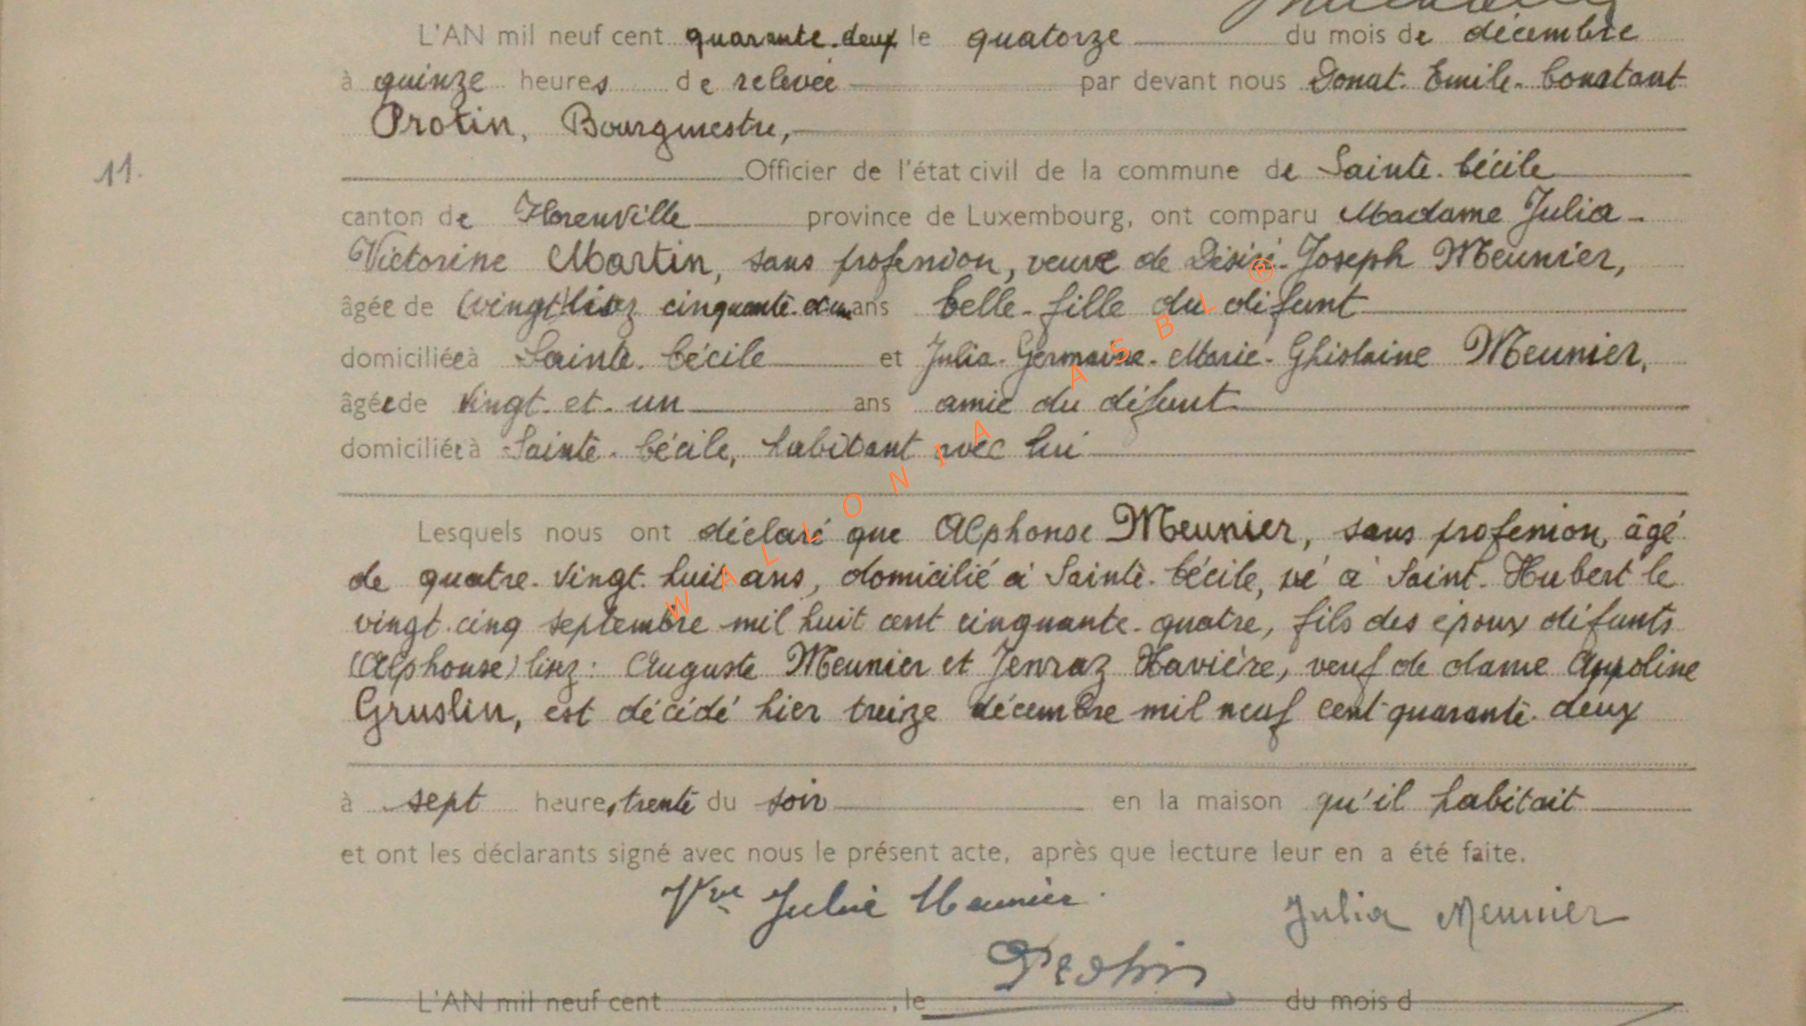 L'AN mil neuf cent quarante-deux le quatorze du mois de décembre
à quinze heures de relevée par devant nous Donat-Emile-Constant
Protin, Bourgmestre,
11.
Officier de l'état civil de la commune de Sainte-Cécile
canton de Florenville province de Luxembourg, ont comparu Madame Julia-
Victorine Martin, sans profession, veuve de Désiré-Joseph Meunier,
âgée de (vingt) lisez cinquante et un ans belle-fille du défunt
domiciliée à Sainte-Cécile et Julia-Germaine-Marie-Ghislaine Meunier,
âgée de vingt-et-un ans amie du défunt
domiciliée à Sainte-Cécile, habitant avec lui
Lesquels nous ont déclaré que Alphonse Meunier, sans profession, âgé
de quatre-vingt huit ans, domicilié à Sainte-Cécile, né à Saint-Hubert le
vingt-cinq septembre mil huit cent cinquante-quatre, fils des époux défunts
(Alphonse) lisez: Auguste Meunier et Jenraz Xavière, veuf de dame Appoline
Gruslin, est décédé hier treize décembre mil neuf cent quarante-deux
à sept heures trente du soir en la maison qu'il habitait
et ont les déclarants signé avec nous le présent acte, après que lecture leur en a été faite.
Vve Julia Meunier Julia Meunier
Protin
L'AN mil neuf cent , le du mois d
WALLONIA ASBL ®